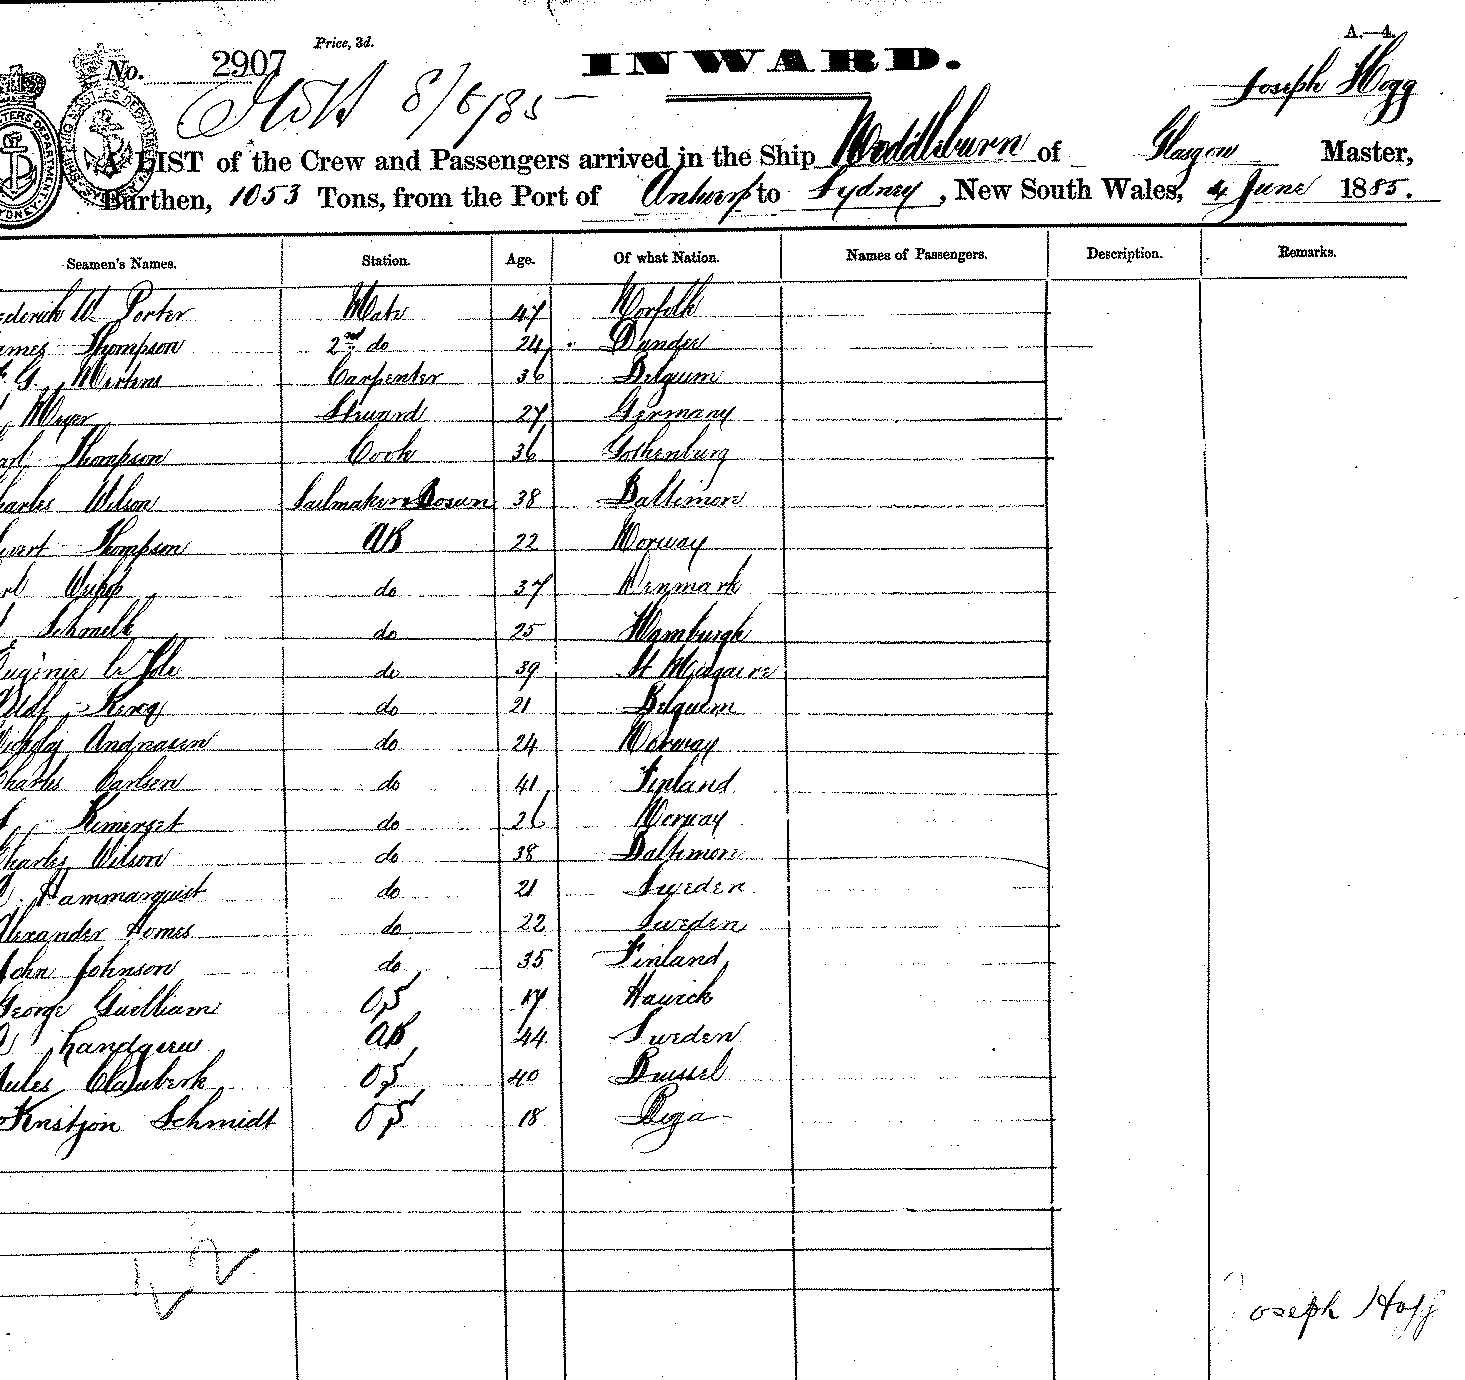 A.—4.
Price, 3d.
No. 2907
INWARD.
Joseph Hogg
8/6/85
A LIST of the Crew and Passengers arrived in the Ship Middleburn of Glasgow Master,
Burthen, 1053 Tons, from the Port of Antwerp to Sydney, New South Wales, 4 June 1885.
Seamen's Names. Station. Age. Of what Nation. Names of Passengers. Description. Remarks.
ederick W Porter Mate 47 Norfolk
ames Thompson 2nd do 24 Dundee
G. Mertens Carpenter 36 Belgium
Meyer Steward 27 Germany
arl Thompson Cook 36 Gothenburg
harles Wilson Sailmaker & Bosun 38 Baltimore
Thompson AB 22 Norway
do 37 Denmark
Schmelk do 25 Hamburgh
Eugénie do 39 St
do 21 Belguim
Andreasen do 24 Norway
Charles Carlsen do 41 Finland
Kemerset do 26 Norway
Charles Wilson do 38 Baltimore
Hammarquist do 21 Sweden
Alexander Homes do 22 Sweden
John Johnson do 35 Finland
George Guilliam OS 17 Hawick
AB 44 Sweden
Jules OS 40 Brussel
Kristjon Schmidt OS 18 Riga
Joseph Hogg